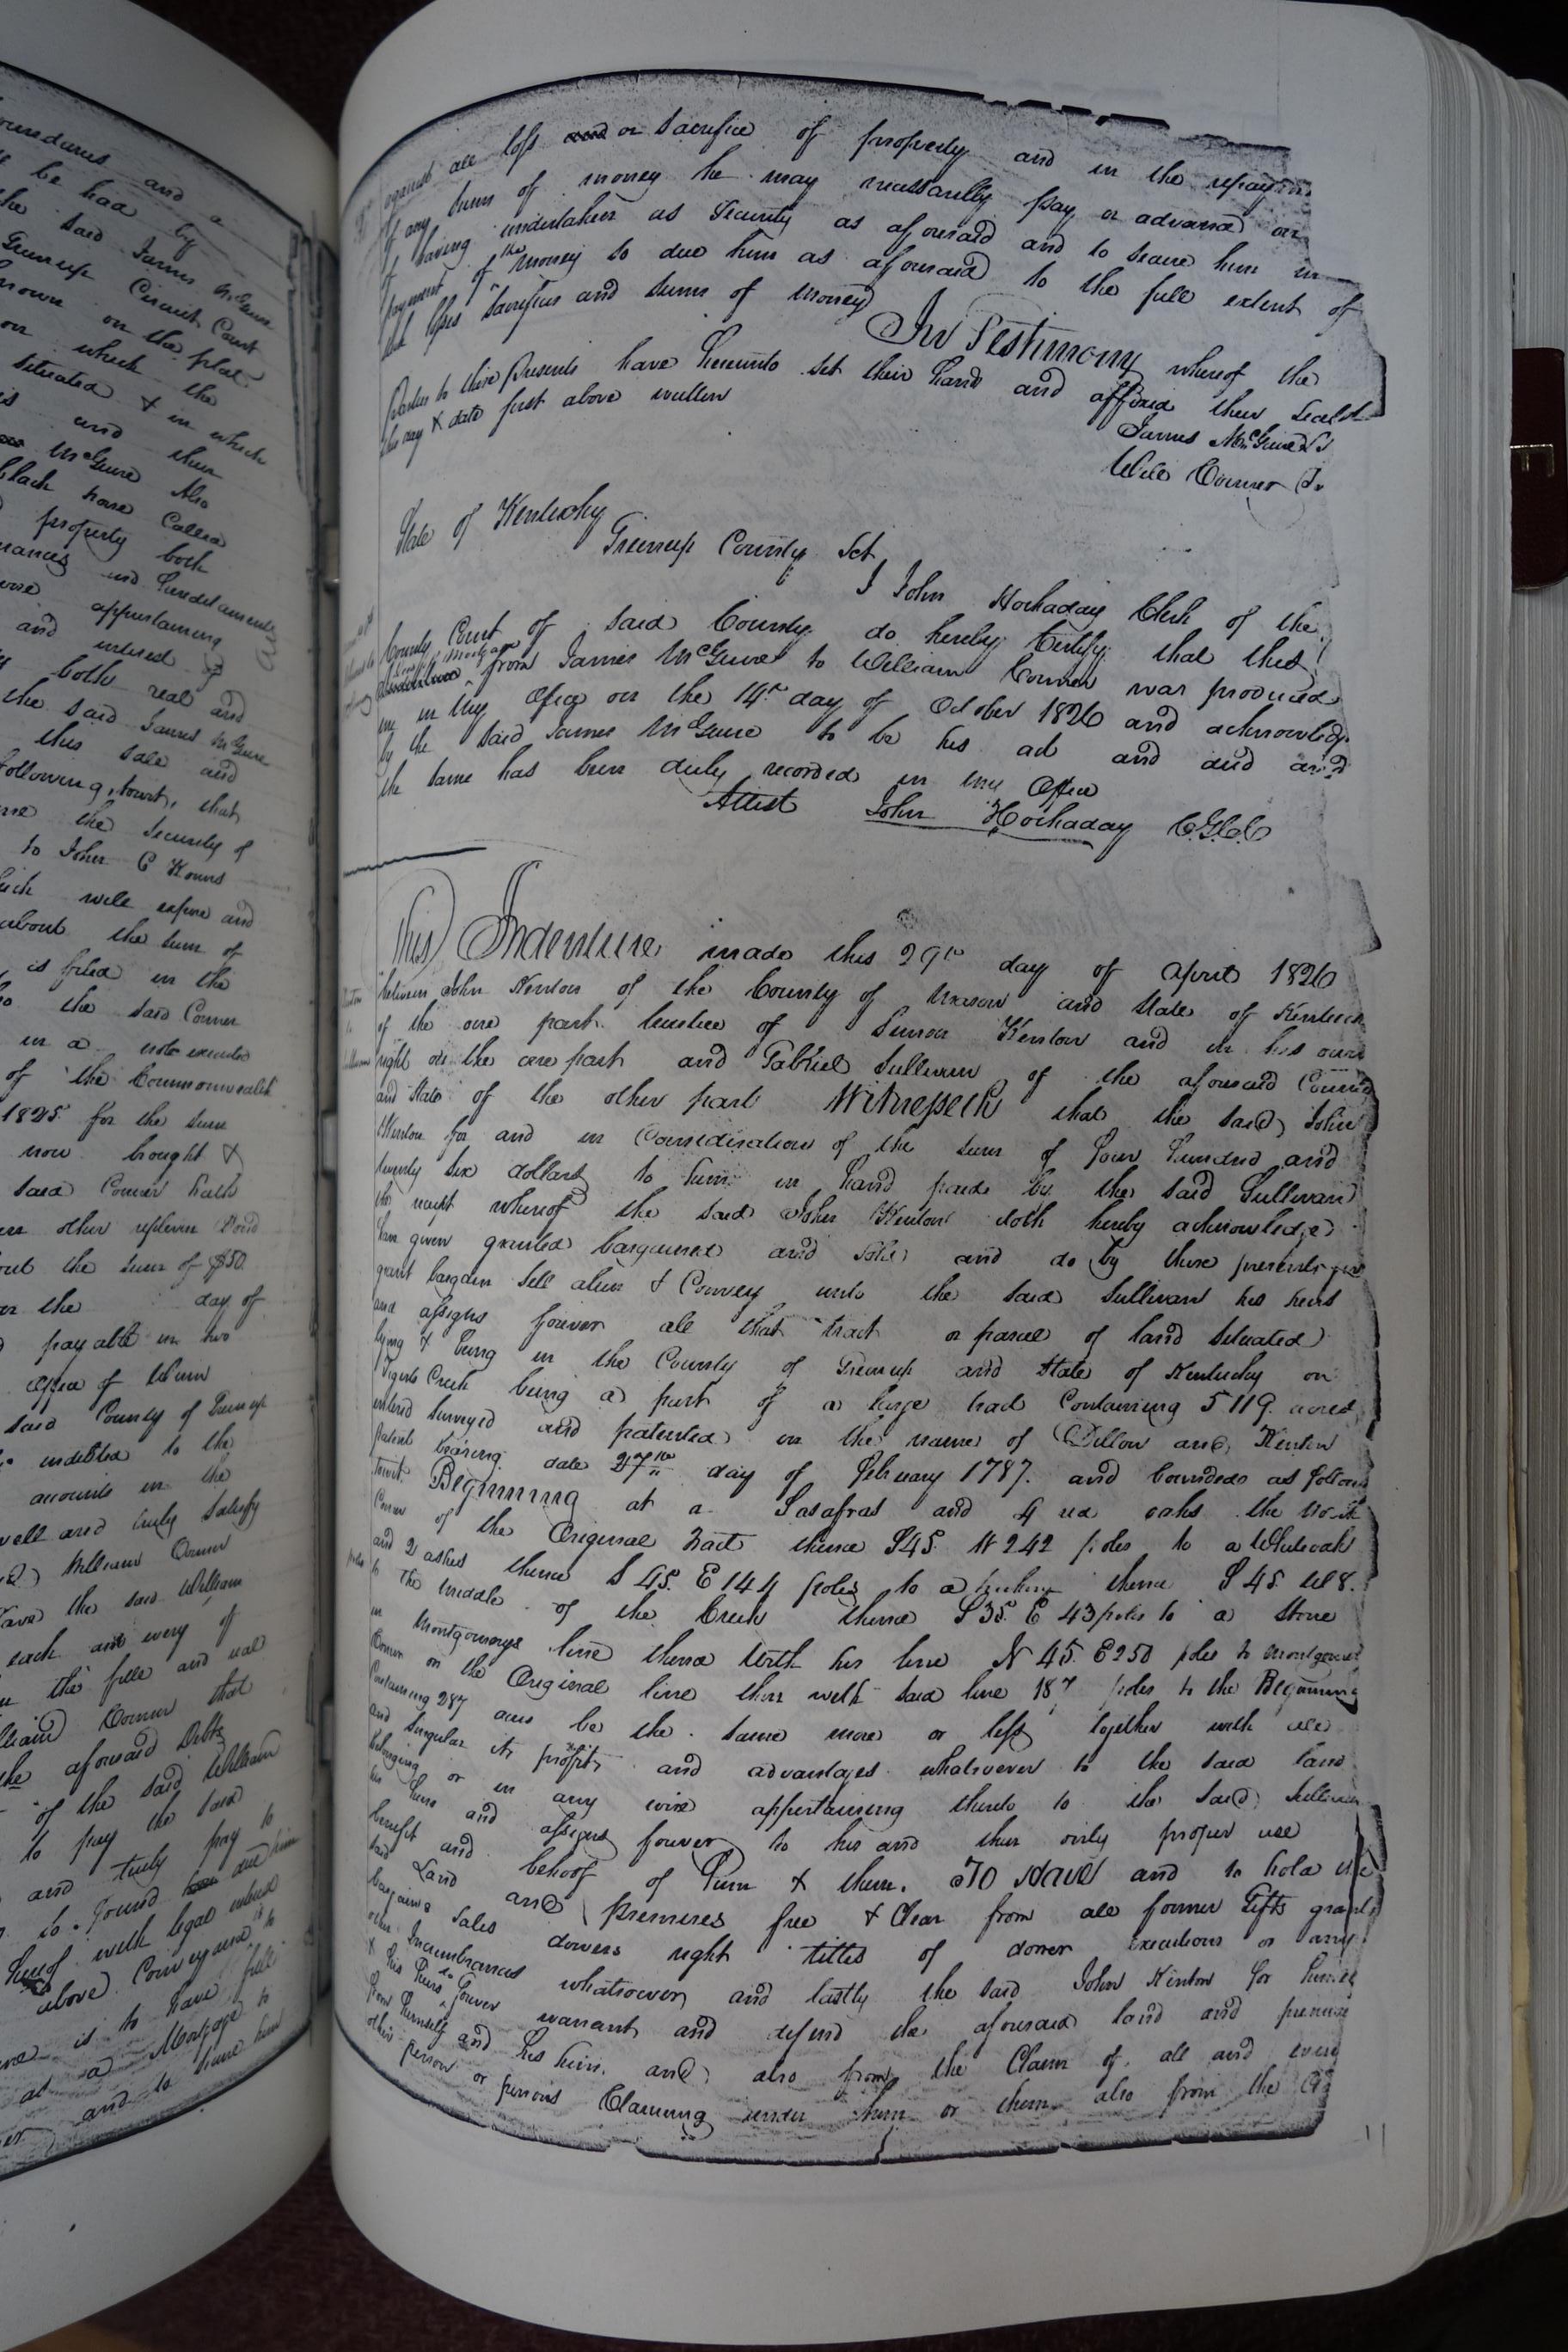 ounedaries and a
be had by
the said James McGuire
Greenup Circuit Court
nown on the plat
on which the
situated & in which
is and then
McGuire Also
black horse Called
property both
nances and hereditaments
appertaining
and interest
both real and
the said James McGuire
this sale and
following, towit, that
the security of
to John C Kouns
will expose and
about the sum of
is filed in the
the said Conner
in a note executed
of the Commonwealth
1825 for the sum
now bought &
said Conner hath
other replevin Bond
out the sum of $50
on the day of
payable in two
office of
said County of Greenup
indebted to the
accounts in the
well and truly satisfy
William Conner
have the said William
each and every of
the full and
William Conner that
the aforesaid Debts
of the said William
to pay the said
and truly pay to
so found due him
hereof with legal interest
above Conveyance is to
is to have full
as a Mortgage to
and to him
against all loss and or sacrifice of property and in the repaym
of any sums of money he may necessarily pay or advance on
of having undertaken as security as aforesaid and to secure him in
payment of the money so due him as aforesaid to the full extent of
such losses sacrifices and sums of money In Testimony whereof the
Parties to these Presents have hereunto set their hands and affixed their seals
the day & date first above written
James McGuire Ls
Will Conner Ls
State of Kentucky
Greenup County Sct
I John Hockaday Clerk of the
County Court of said County do hereby Certify that this
Deed of Mortgage
Indenture from James McGuire to William Conner was produced
me in my office on the 14th day of October 1826 and acknowledge
by the said James McGuire to be his act and deed and
the same has been duly recorded in my Office
Attest John Hockaday C.G.C.C
This Indenture made this 29th day of April 1826
between John Kenton of the County of Mason and State of Kentuck
of the one part trustee of Simon Kenton and in his own
right on the one part and Gabriel Sullivan of the aforesaid County
and State of the other part Witnesseth that the said John
Kenton for and in Consideration of the sum of four hundred and
twenty six dollars to him in hand paid by the said Sullivan
the receipt whereof the said John Kenton doth hereby acknowledge
have given granted bargained and sold and do by these presents give
grant bargain sell alien & Convey unto the said Sullivan his heirs
and assigns forever all that tract or parcel of land situated
lying & being in the County of Greenup and State of Kentucky on
Tigerts Creek being a part of a large tract Containing 5119 acres
entered surveyed and patented in the name of Dillon and Kenton
patent bearing date 27th day of February 1787. and bounded as follows
towit. Beginning at a Sasafras and 4 red oaks the North
Corner of the Original Tract thence S45 W 242 poles to a Whiteoak
and 2 ashes thence S 45. E 144 poles to a thence S 45 W 8.
poles to the middle of the Creek thence S35 E 43 poles to a Stone
in Montgomerys line thence with his line N 45. E 250 poles to Montgomerys
Corner on the Original line then with said line 187 poles to the Beginning
Containing 287 acres be the same more or less together with all
and singular its profits and advantages whatsoever to the said land
belonging or in any wise appertaining thereto to the said Sullivan
his heirs and assigns forever to his and their only proper use
benefit and behoof of him & them. To Have and to hold the
said Land and Premises free & Clear from all former Gifts grants
bargains Sales dowers right titles of dower executions or any
other Incumbrances whatsoever and lastly the said John Kenton for himself
& his heirs do forever warrant and defend the aforesaid land and premises
from himself and his heirs. and also from the Claim of. all and every
other person or persons Claiming under him or them also from the